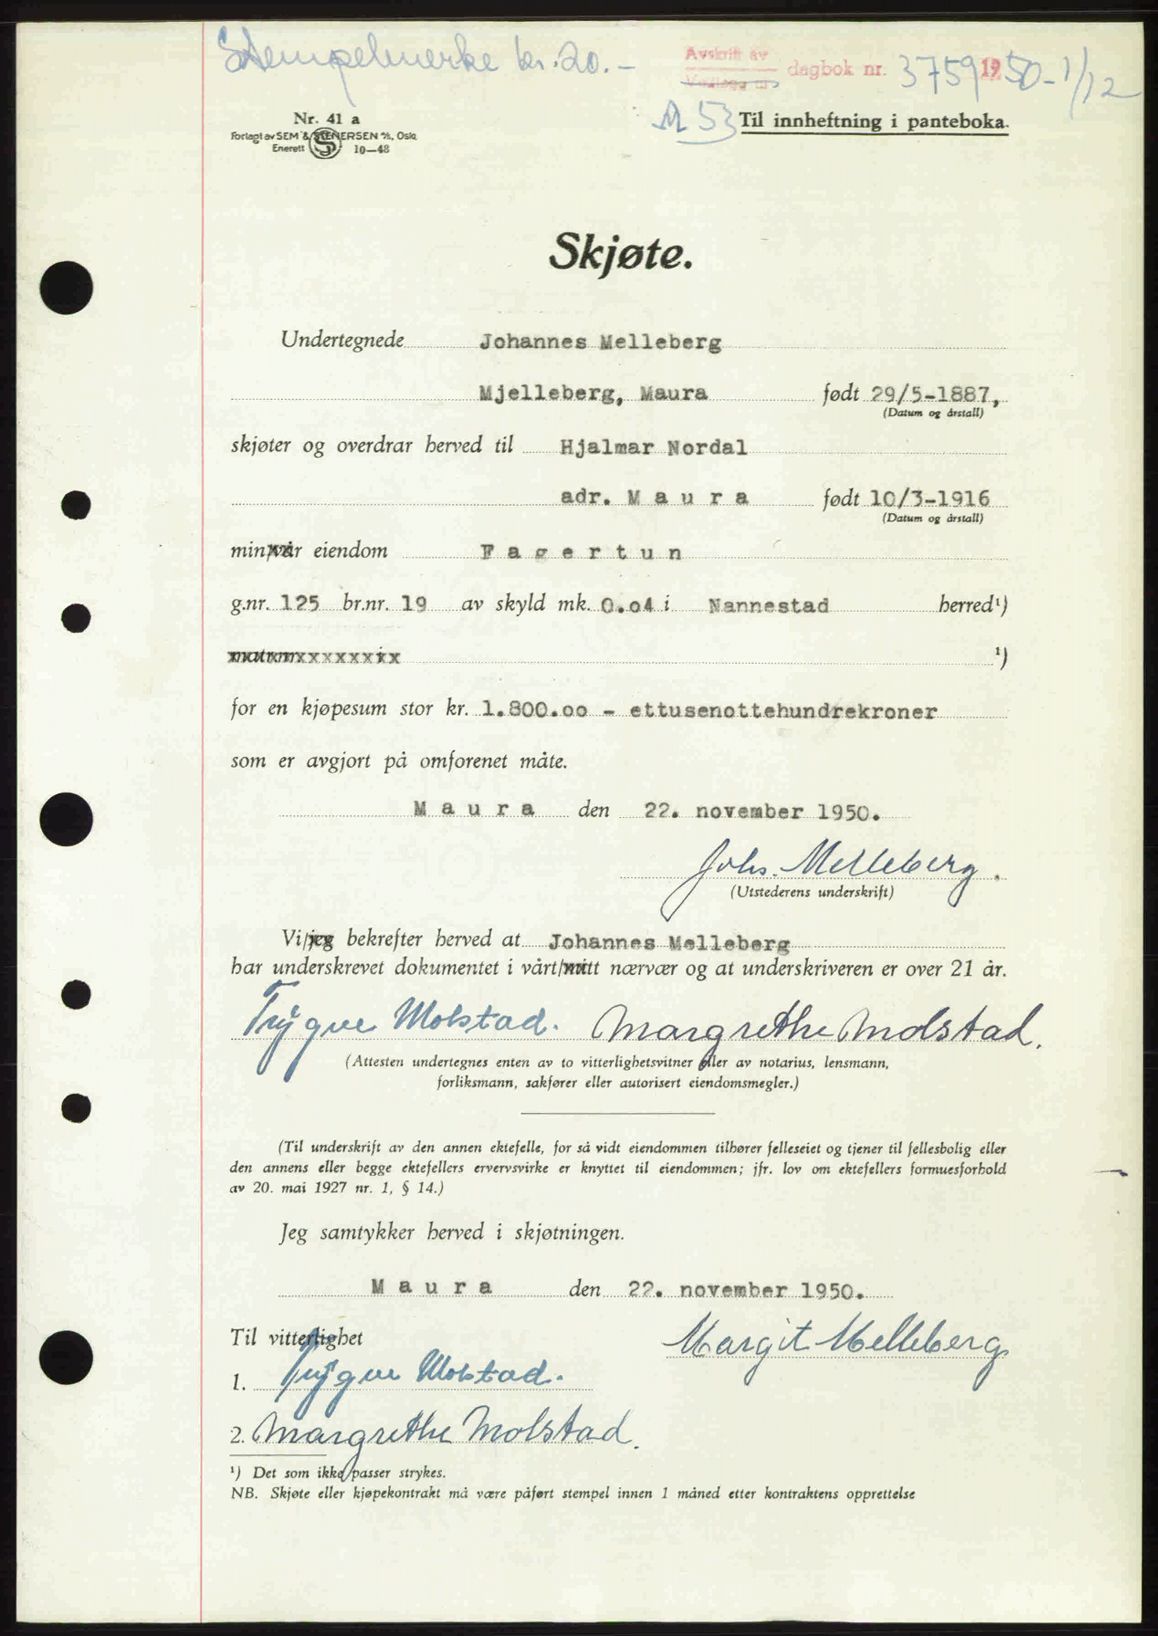 Stempelmerke kr. 20.-
Avskrift av
dagbok nr. 3759 1950-1/12
Nr. 41 a
Forlagt av SEM & STENERSEN A/S, Oslo
Enerett 10-48
M 53 Til innheftning i panteboka.
Skjøte.
Undertegnede Johannes Melleberg
Mjelleberg, Maura født 29/5-1887,
(Datum og årstall)
skjøter og overdrar herved til Hjalmar Nordal
adr. M a u r a født 10/3-1916
(Datum og årstall)
min/vår eiendom F a g e r t u n
g.nr. 125 br.nr. 19 av skyld mk. 0.o4 i Nannestad herred¹)
¹)
for en kjøpesum stor kr. 1.800.oo - ettusenottehundrekroner
som er avgjort på omforenet måte.
M a u r a den 22. november 1950.
Johs. Melleberg.
(Utstederens underskrift)
Vi/jeg bekrefter herved at Johannes Melleberg
har underskrevet dokumentet i vårt/mitt nærvær og at underskriveren er over 21 år.
Trygve Molstad. Margrethe Molstad.
(Attesten undertegnes enten av to vitterlighetsvitner eller av notarius, lensmann,
forliksmann, sakfører eller autorisert eiendomsmegler.)
(Til underskrift av den annen ektefelle, for så vidt eiendommen tilhører felleseiet og tjener til fellesbolig eller
den annens eller begge ektefellers ervervsvirke er knyttet til eiendommen; jfr. lov om ektefellers formuesforhold
av 20. mai 1927 nr. 1, § 14.)
Jeg samtykker herved i skjøtningen.
M a u r a den 22. november 1950.
Til vitterlighet
Margit Melleberg
1. Trygve Molstad.
2. Margrethe Molstad.
¹) Det som ikke passer strykes.
NB. Skjøte eller kjøpekontrakt må være påført stempel innen 1 måned etter kontraktens opprettelse